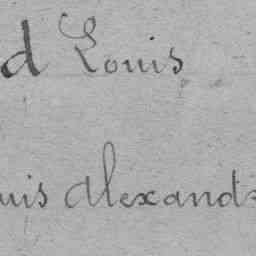 d Louis
uis Alexand